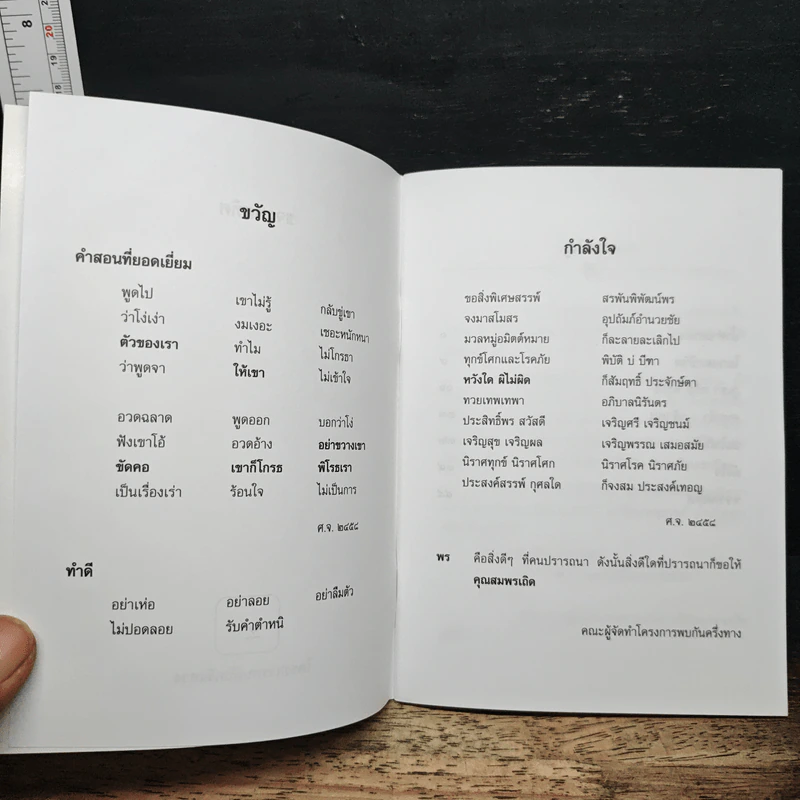 8
20
19
18
ขวัญ
คำสอนที่ยอดเยี่ยม
พูดไป เขาไม่รู้ กลับขู่เขา
ว่าโง่เง่า งมเงอะ เซอะหนักหนา
ตัวของเรา ทำไม ไม่โกรธา
ว่าพูดจา ให้เขา ไม่เข้าใจ
อวดฉลาด พูดออก บอกว่าโง่
ฟังเขาโอ้ อวดอ้าง อย่าขวางเขา
ขัดคอ เขาก็โกรธ พิโรธเรา
เป็นเรื่องเร่า ร้อนใจ ไม่เป็นการ
ศ.จ. ๒๔๕๘
ทำดี
อย่าเห่อ อย่าลอย อย่าลืมตัว
ไม่ปอดลอย รับคำตำหนิ
กำลังใจ
ขอสิ่งพิเศษสรรพ์ สรพันพิพัฒน์พร
จงมาสโมสร อุปถัมภ์อำนวยชัย
มวลหมู่อมิตต์หมาย ก็ละลายละเลิกไป
ทุกข์โศกและโรคภัย พิบัติ บ่ บีฑา
หวังใด ผิไม่ผิด ก็สัมฤทธิ์ ประจักษ์ตา
ทวยเทพเทพา อภิบาลนิรันดร
ประสิทธิ์พร สวัสดี เจริญศรี เจริญชนม์
เจริญสุข เจริญผล เจริญพรรณ เสมอสมัย
นิราศทุกข์ นิราศโศก นิราศโรค นิราศภัย
ประสงค์สรรพ์ กุศลใด ก็จงสม ประสงค์เทอญ
ศ.จ. ๒๔๕๘
พร คือสิ่งดีๆ ที่คนปรารถนา ดังนั้นสิ่งดีใดที่ปรารถนาก็ขอให้
คุณสมพรเถิด
คณะผู้จัดทำโครงการพบกันครึ่งทาง